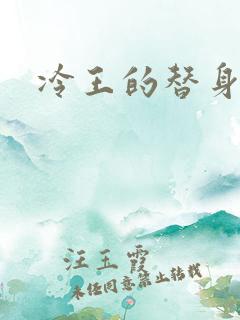 冷王的替身
汪玉霞
未经同意禁止转载